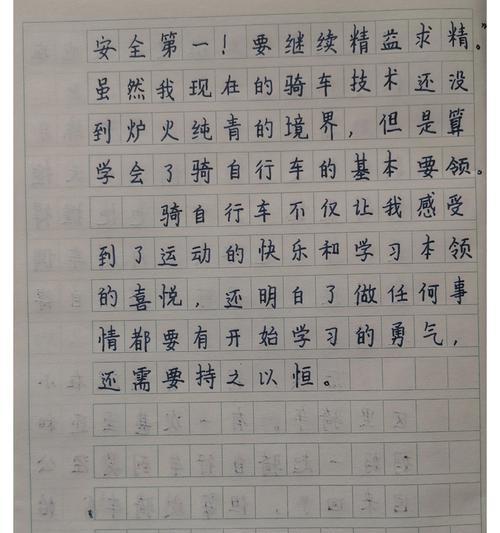 安全第一！要继续精益求精。
虽然我现在的骑车技术还没
到炉火纯青的境界，但是算
学会了骑自行车的基本要领。
骑自行车不仅让我感受
到了运动的快乐和学习本领
的喜悦，还明白了做任何事
情都要有开始学习的勇气，
还需要持之以恒。